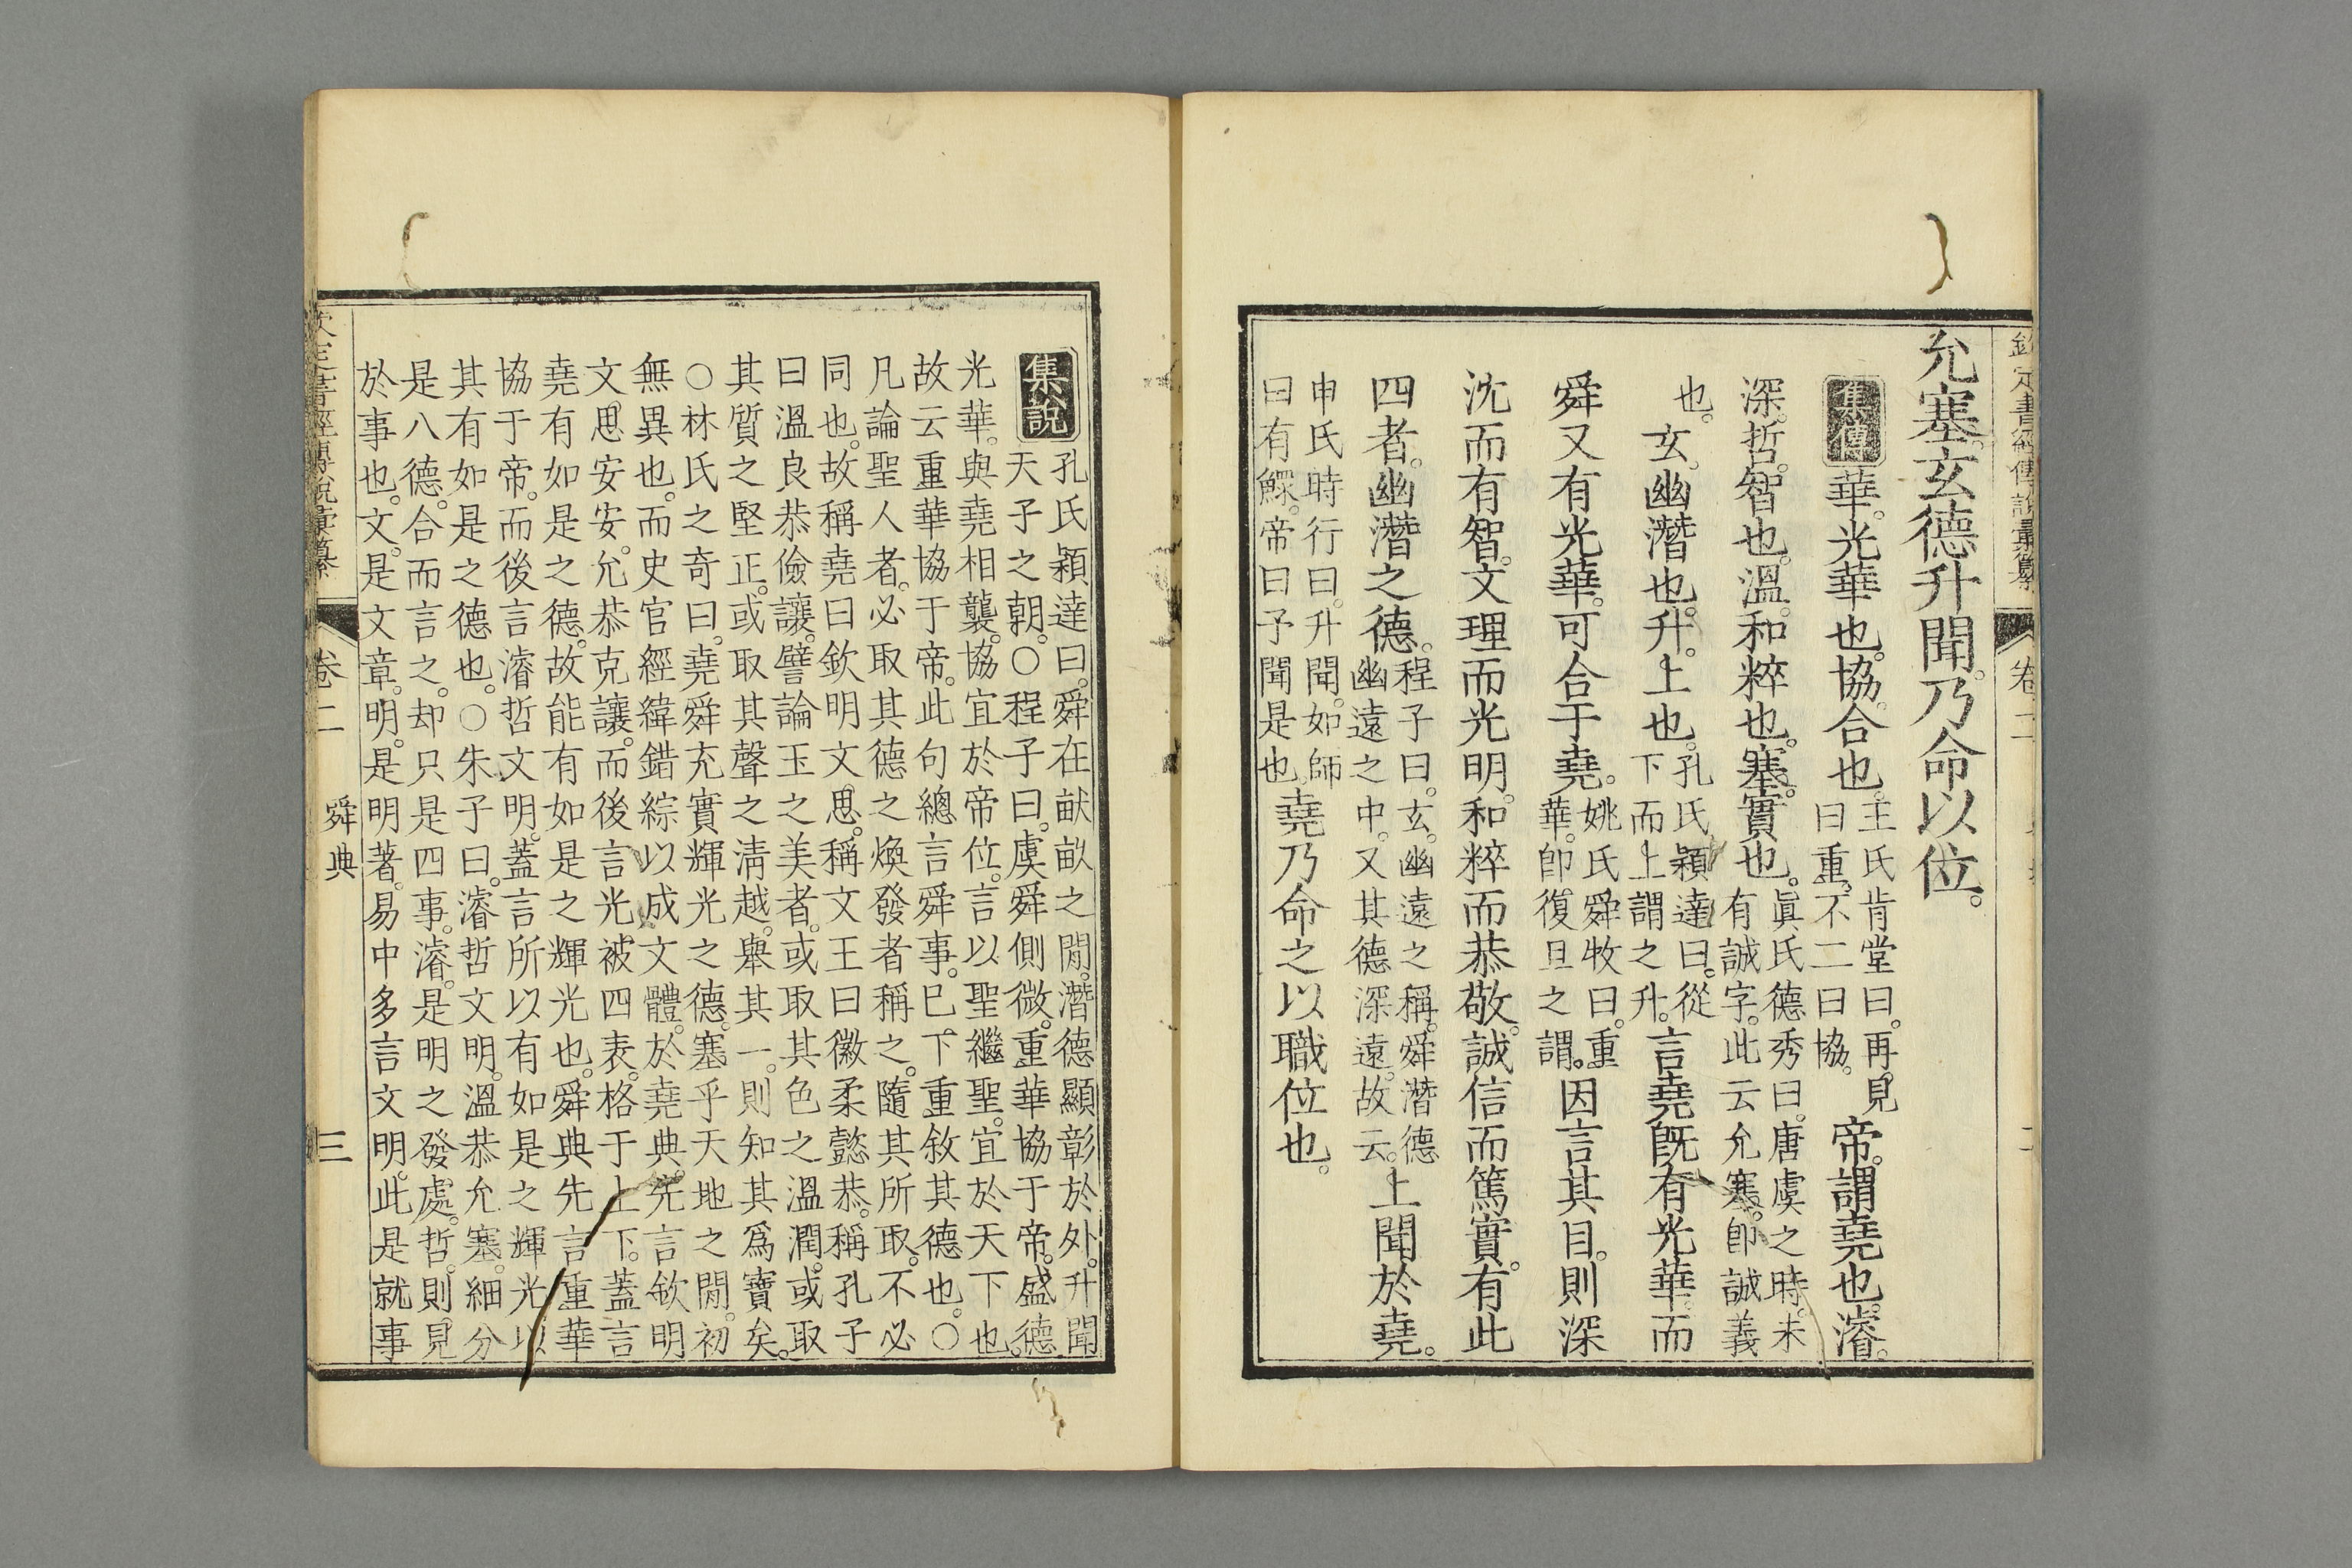 欽定書經傳說彙纂 卷二 二
允塞。玄德升聞。乃命以位。
集傳 華。光華也。協。合也。王氏肯堂曰。再見曰重。不二曰協。帝。謂堯也。濬。
深。哲。智也。溫。和粹也。塞。實也。眞氏德秀曰。唐虞之時。未有誠字。此云允塞。卽誠義
也。玄。幽潛也。升。上也。孔氏穎達曰。從下而上謂之升。言堯旣有光華。而
舜又有光華。可合于堯。姚氏舜牧曰。重華。卽復旦之謂。因言其目。則深
沈而有智。文理而光明。和粹而恭敬。誠信而篤實。有此
四者。幽潛之德。程子曰。玄。幽遠之稱。舜潛德幽遠之中。又其德深遠。故云。上聞於堯。
申氏時行曰。升聞。如師曰有鰥。帝曰予聞是也。堯乃命之以職位也。
集說 孔氏穎達曰。舜在畎畝之閒。潛德顯彰於外。升聞
天子之朝。○程子曰。虞舜側微。重華協于帝。盛德
光華。與堯相襲。協宜於帝位。言以聖繼聖。宜於天下也。
故云重華協于帝。此句總言舜事。已下重敘其德也。○
凡論聖人者。必取其德之煥發者稱之。隨其所取。不必
同也。故稱堯曰欽明文思。稱文王曰徽柔懿恭。稱孔子
曰溫良恭儉讓。譬論玉之美者。或取其色之溫潤。或取
其質之堅正。或取其聲之淸越。舉其一。則知其爲寶矣。
○林氏之奇曰。堯舜充實輝光之德。塞乎天地之閒。初
無異也。而史官經緯錯綜以成文體。於堯典。先言欽明
文思安安。允恭克讓。而後言光被四表。格于上下。蓋言
堯有如是之德。故能有如是之輝光也。舜典先言重華
協于帝。而後言濬哲文明。蓋言所以有如是之輝光以
其有如是之德也。○朱子曰。濬哲文明。溫恭允塞。細分
是八德。合而言之。却只是四事。濬。是明之發處。哲。則見
於事也。文。是文章。明。是明著。易中多言文明。此是就事
欽定書經傳說彙纂 卷二 舜典 三